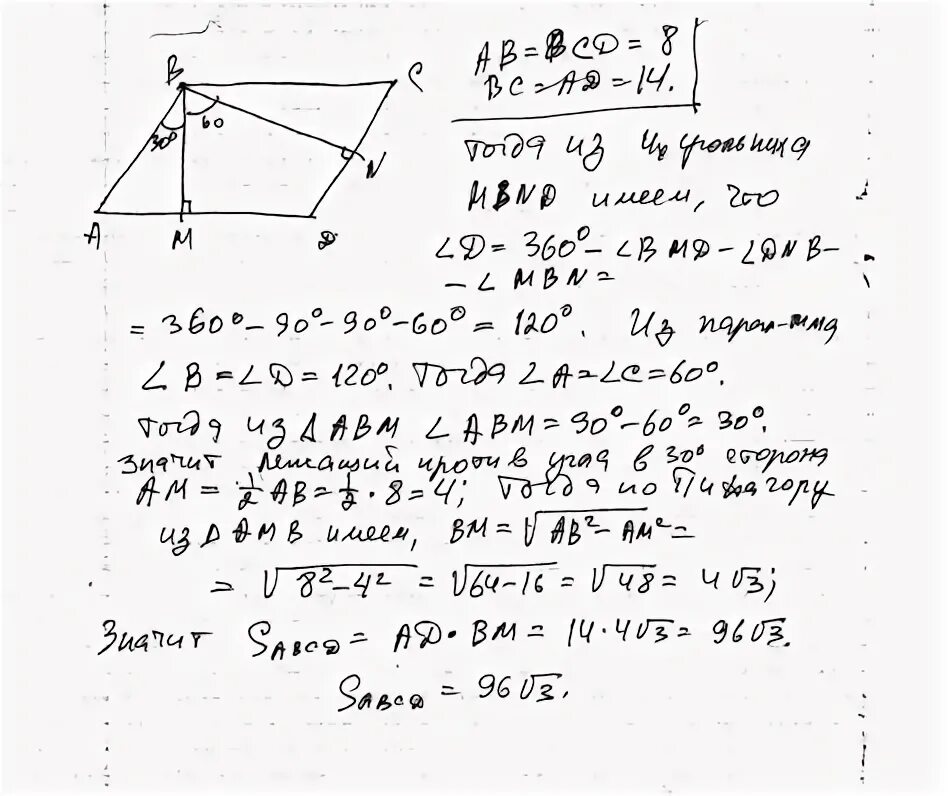 B
C
30°
60
N
A
M
D
AB = CD = 8
BC = AD = 14.
Тогда из 4х угольника
MBND имеем, что
∠D = 360° - ∠BMD - ∠DNB -
- ∠MBN =
= 360° - 90° - 90° - 60° = 120°. Из парал-мма
∠B = ∠D = 120°. Тогда ∠A = ∠C = 60°.
Тогда из △ABM ∠ABM = 90° - 60° = 30°.
Значит лежащий против угла в 30° сторона
AM = 1/2 AB = 1/2 · 8 = 4; Тогда по Пифагору
из △AMB имеем, BM = √(AB² - AM²) =
= √(8² - 4²) = √(64 - 16) = √48 = 4√3;
Значит S_ABCD = AD · BM = 14 · 4√3 = 96√3.
S_ABCD = 96√3.